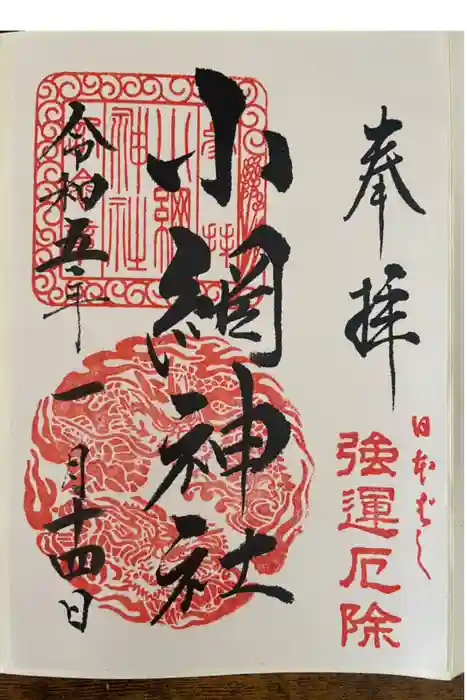 奉拝
日本ばし
強運厄除
小網神社
令和五年
一月十四日